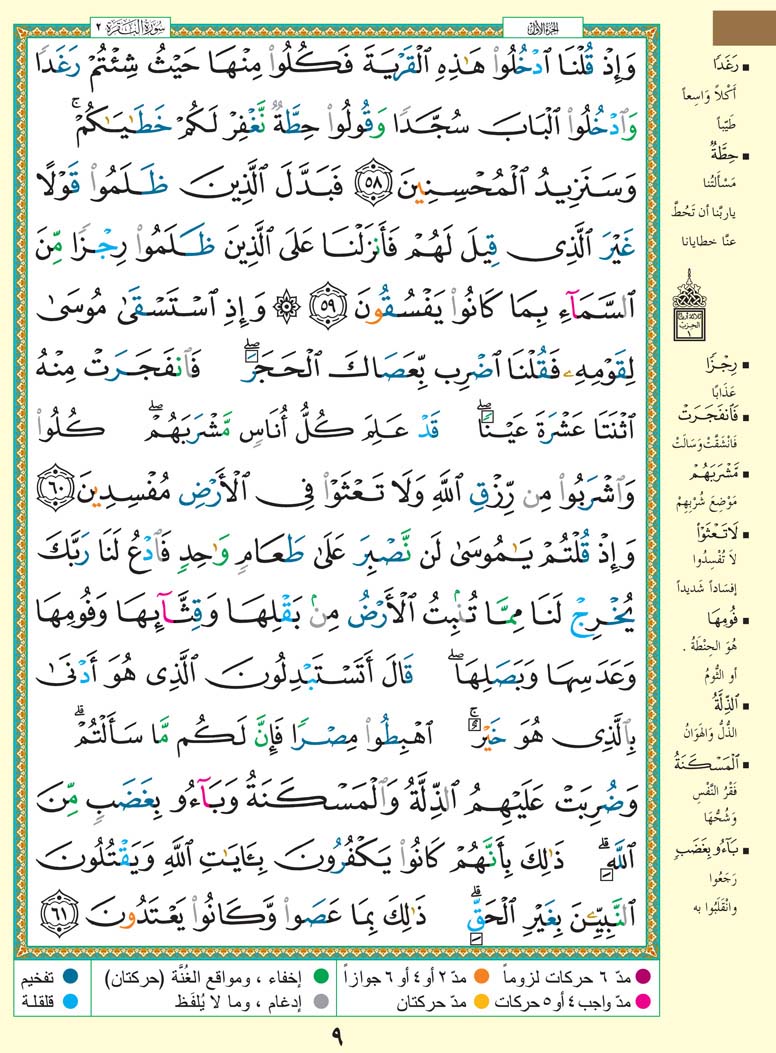 سُورَةُ البَقَرَة ٢
الجزء الأول
وَإِذْ قُلْنَا ٱدْخُلُوا۟ هَٰذِهِ ٱلْقَرْيَةَ فَكُلُوا۟ مِنْهَا حَيْثُ شِئْتُمْ رَغَدًا
وَٱدْخُلُوا۟ ٱلْبَابَ سُجَّدًا وَقُولُوا۟ حِطَّةٌ نَّغْفِرْ لَكُمْ خَطَٰيَٰكُمْ ۚ
وَسَنَزِيدُ ٱلْمُحْسِنِينَ ٥٨ فَبَدَّلَ ٱلَّذِينَ ظَلَمُوا۟ قَوْلًا
غَيْرَ ٱلَّذِى قِيلَ لَهُمْ فَأَنزَلْنَا عَلَى ٱلَّذِينَ ظَلَمُوا۟ رِجْزًا مِّنَ
ٱلسَّمَآءِ بِمَا كَانُوا۟ يَفْسُقُونَ ٥٩ ۞ وَإِذِ ٱسْتَسْقَىٰ مُوسَىٰ
لِقَوْمِهِۦ فَقُلْنَا ٱضْرِب بِّعَصَاكَ ٱلْحَجَرَ ۖ فَٱنفَجَرَتْ مِنْهُ
ٱثْنَتَا عَشْرَةَ عَيْنًا ۖ قَدْ عَلِمَ كُلُّ أُنَاسٍ مَّشْرَبَهُمْ ۖ كُلُوا۟
وَٱشْرَبُوا۟ مِن رِّزْقِ ٱللَّهِ وَلَا تَعْثَوْا۟ فِى ٱلْأَرْضِ مُفْسِدِينَ ٦٠
وَإِذْ قُلْتُمْ يَٰمُوسَىٰ لَن نَّصْبِرَ عَلَىٰ طَعَامٍ وَٰحِدٍ فَٱدْعُ لَنَا رَبَّكَ
يُخْرِجْ لَنَا مِمَّا تُنۢبِتُ ٱلْأَرْضُ مِنۢ بَقْلِهَا وَقِثَّآئِهَا وَفُومِهَا
وَعَدَسِهَا وَبَصَلِهَا ۖ قَالَ أَتَسْتَبْدِلُونَ ٱلَّذِى هُوَ أَدْنَىٰ
بِٱلَّذِى هُوَ خَيْرٌ ۚ ٱهْبِطُوا۟ مِصْرًا فَإِنَّ لَكُم مَّا سَأَلْتُمْ ۗ
وَضُرِبَتْ عَلَيْهِمُ ٱلذِّلَّةُ وَٱلْمَسْكَنَةُ وَبَآءُو بِغَضَبٍ مِّنَ
ٱللَّهِ ۗ ذَٰلِكَ بِأَنَّهُمْ كَانُوا۟ يَكْفُرُونَ بِـَٔايَٰتِ ٱللَّهِ وَيَقْتُلُونَ
ٱلنَّبِيِّـۧنَ بِغَيْرِ ٱلْحَقِّ ۗ ذَٰلِكَ بِمَا عَصَوا۟ وَّكَانُوا۟ يَعْتَدُونَ ٦١
رَغَدًا
أَكْلاً وَاسِعاً
طَيِّباً
حِطَّةٌ
مَسْأَلَتُنَا
ياربَّنا أن تَحُطَّ
عنَّا خطايانا
ثلاثة أرباع
الحزب
١
رِجْزًا
عَذَابًا
فَٱنفَجَرَتْ
فَانْشَقَّتْ وَسَالَتْ
مَّشْرَبَهُمْ
مَوْضِعَ شُرْبِهِمْ
لَا تَعْثَوْا۟
لاَ تُفْسِدُوا
إفسَاداً شَدِيداً
فُومِهَا
هُوَ الحِنْطَةُ .
أو الثُّومُ
ٱلذِّلَّةُ
الذُّلُّ وَالهَوَانُ
ٱلْمَسْكَنَةُ
فَقْرُ النَّفْسِ
وَشُحُّهَا
بَآءُو بِغَضَبٍ
رَجَعُوا
وانْقَلَبُوا به
مدّ ٦ حركات لزوماً
مدّ ٢ أو ٤ أو ٦ جوازاً
إخفاء ، ومواقع الغُنَّة (حركتان)
تفخيم
مدّ واجب ٤ أو ٥ حركات
مدّ حركتان
إدغام ، وما لا يُلفَظ
قلقلة
٩